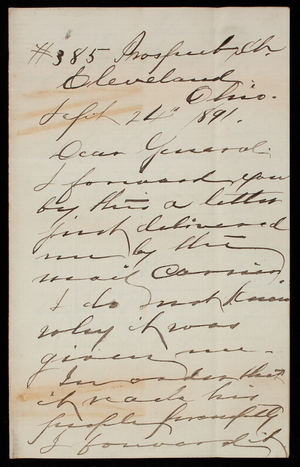 #385 Prospect St.
Cleveland
Ohio.
Sept 24th 1891.
Dear General:
I forward you
by this a letter
just delivered
me by the
mail carrier,
I do not know
why it was
given me.
In order that
it reach his
people promptly
I forward it